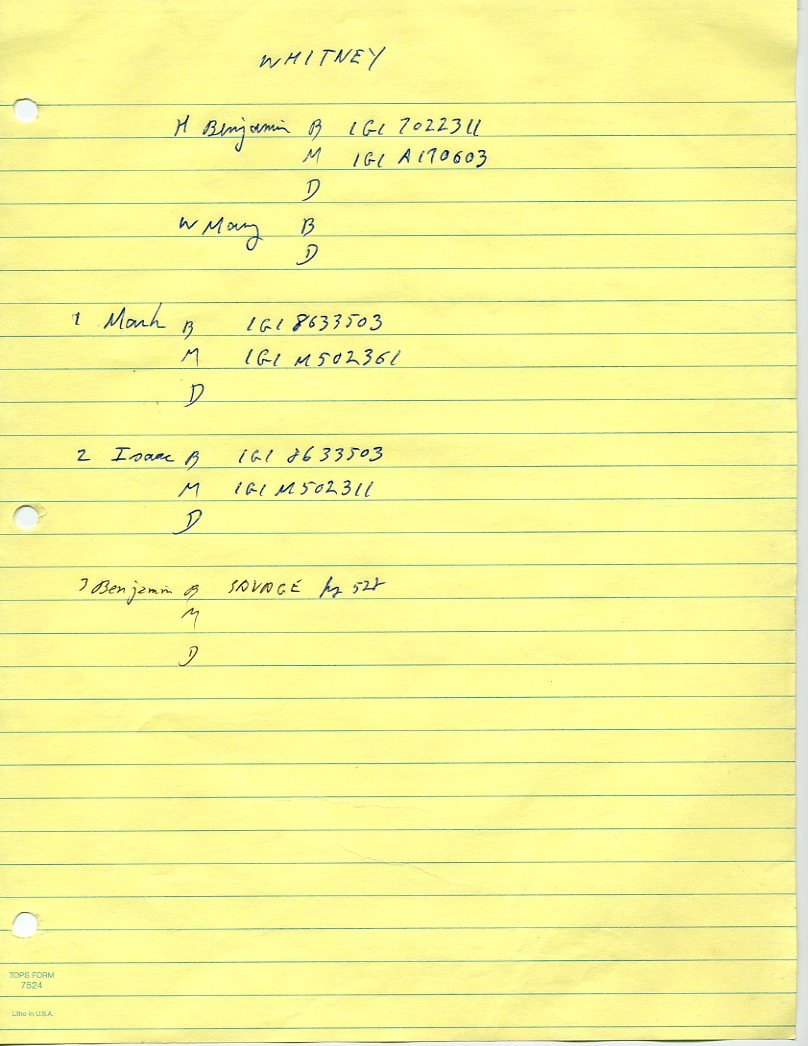 WHITNEY
H Benjamin B IGI 7022311
M IGI A170603
D
W Mary B
D
1 Mark B IGI 8633503
M IGI M502361
D
2 Isaac B IGI 8633503
M IGI M502311
D
3 Benjamin B SAVAGE pg 528
M
D
TOPS FORM
7524
Litho in U.S.A.